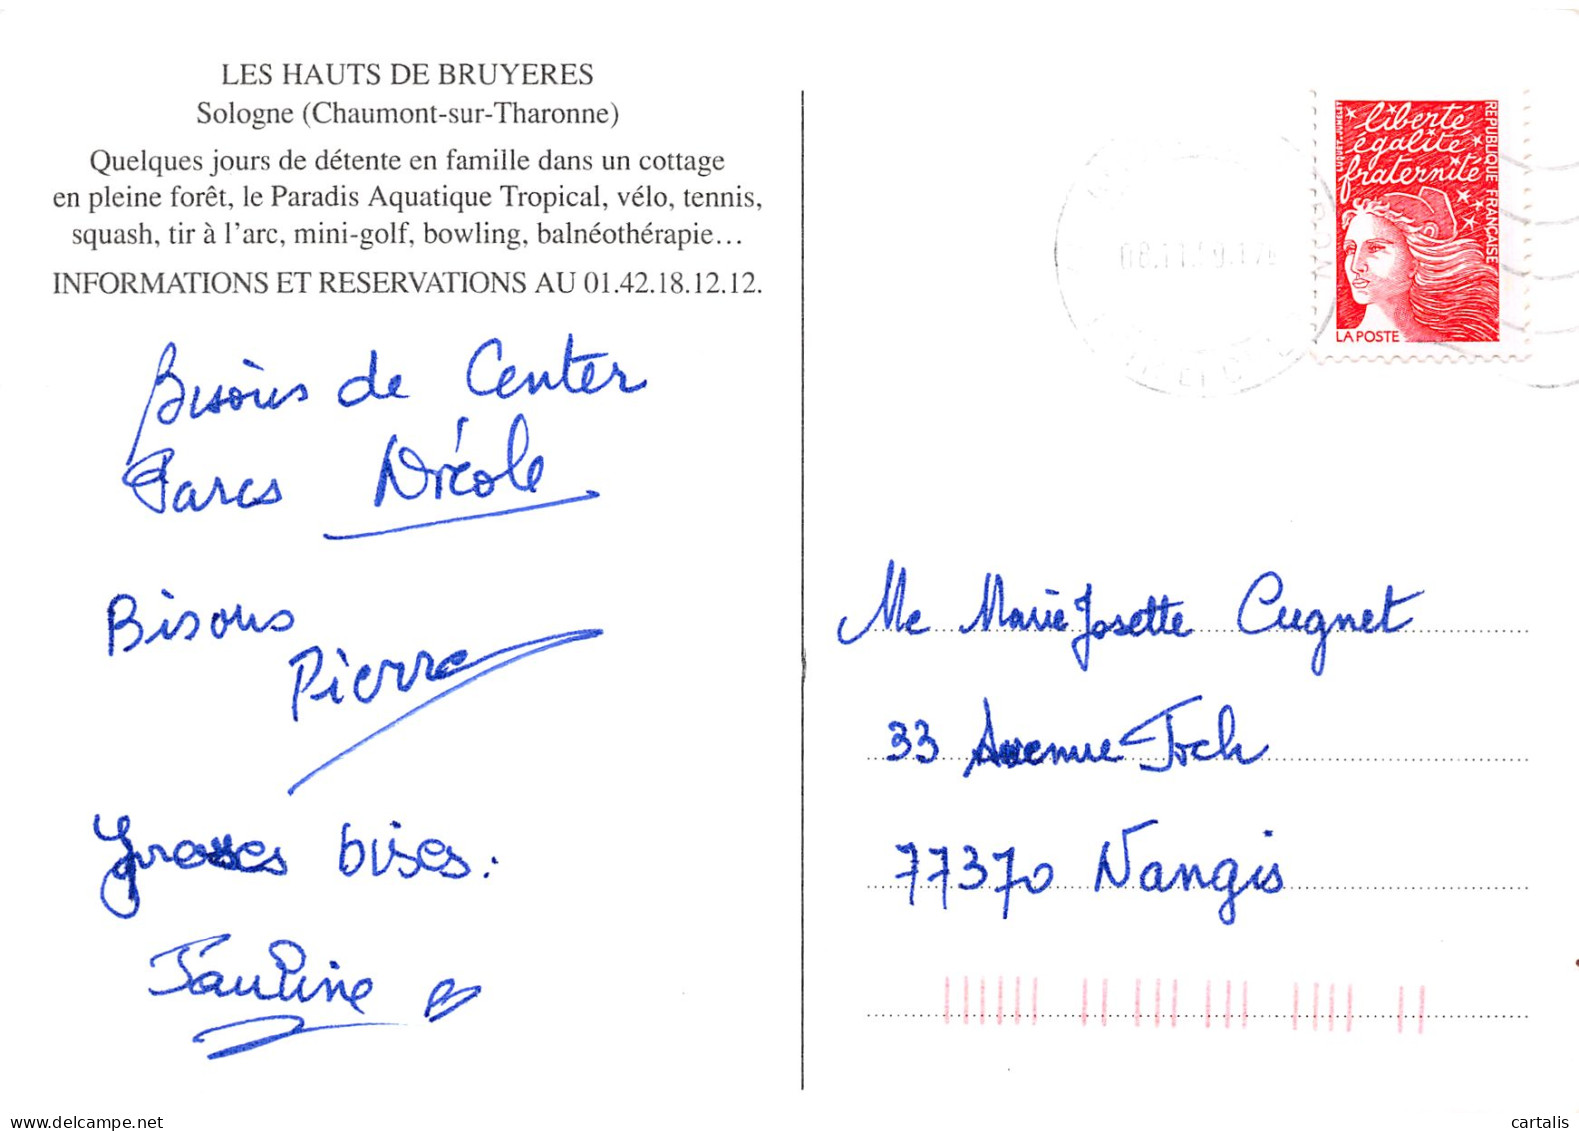 LES HAUTS DE BRUYERES
Sologne (Chaumont-sur-Tharonne)
Quelques jours de détente en famille dans un cottage
en pleine forêt, le Paradis Aquatique Tropical, vélo, tennis,
squash, tir à l'arc, mini-golf, bowling, balnéothérapie...
INFORMATIONS ET RESERVATIONS AU 01.42.18.12.12.
Bisous de Center
Parcs Nicole
Bisous
Pierre
Grosses bises.
Pauline
liberté
égalité
fraternité
REPUBLIQUE FRANÇAISE
LUQUET-JUMELET
LA POSTE
Me Marie Josette Cugnet
33 Avenue Foch
77370 Nangis
delcampe.net
cartalis